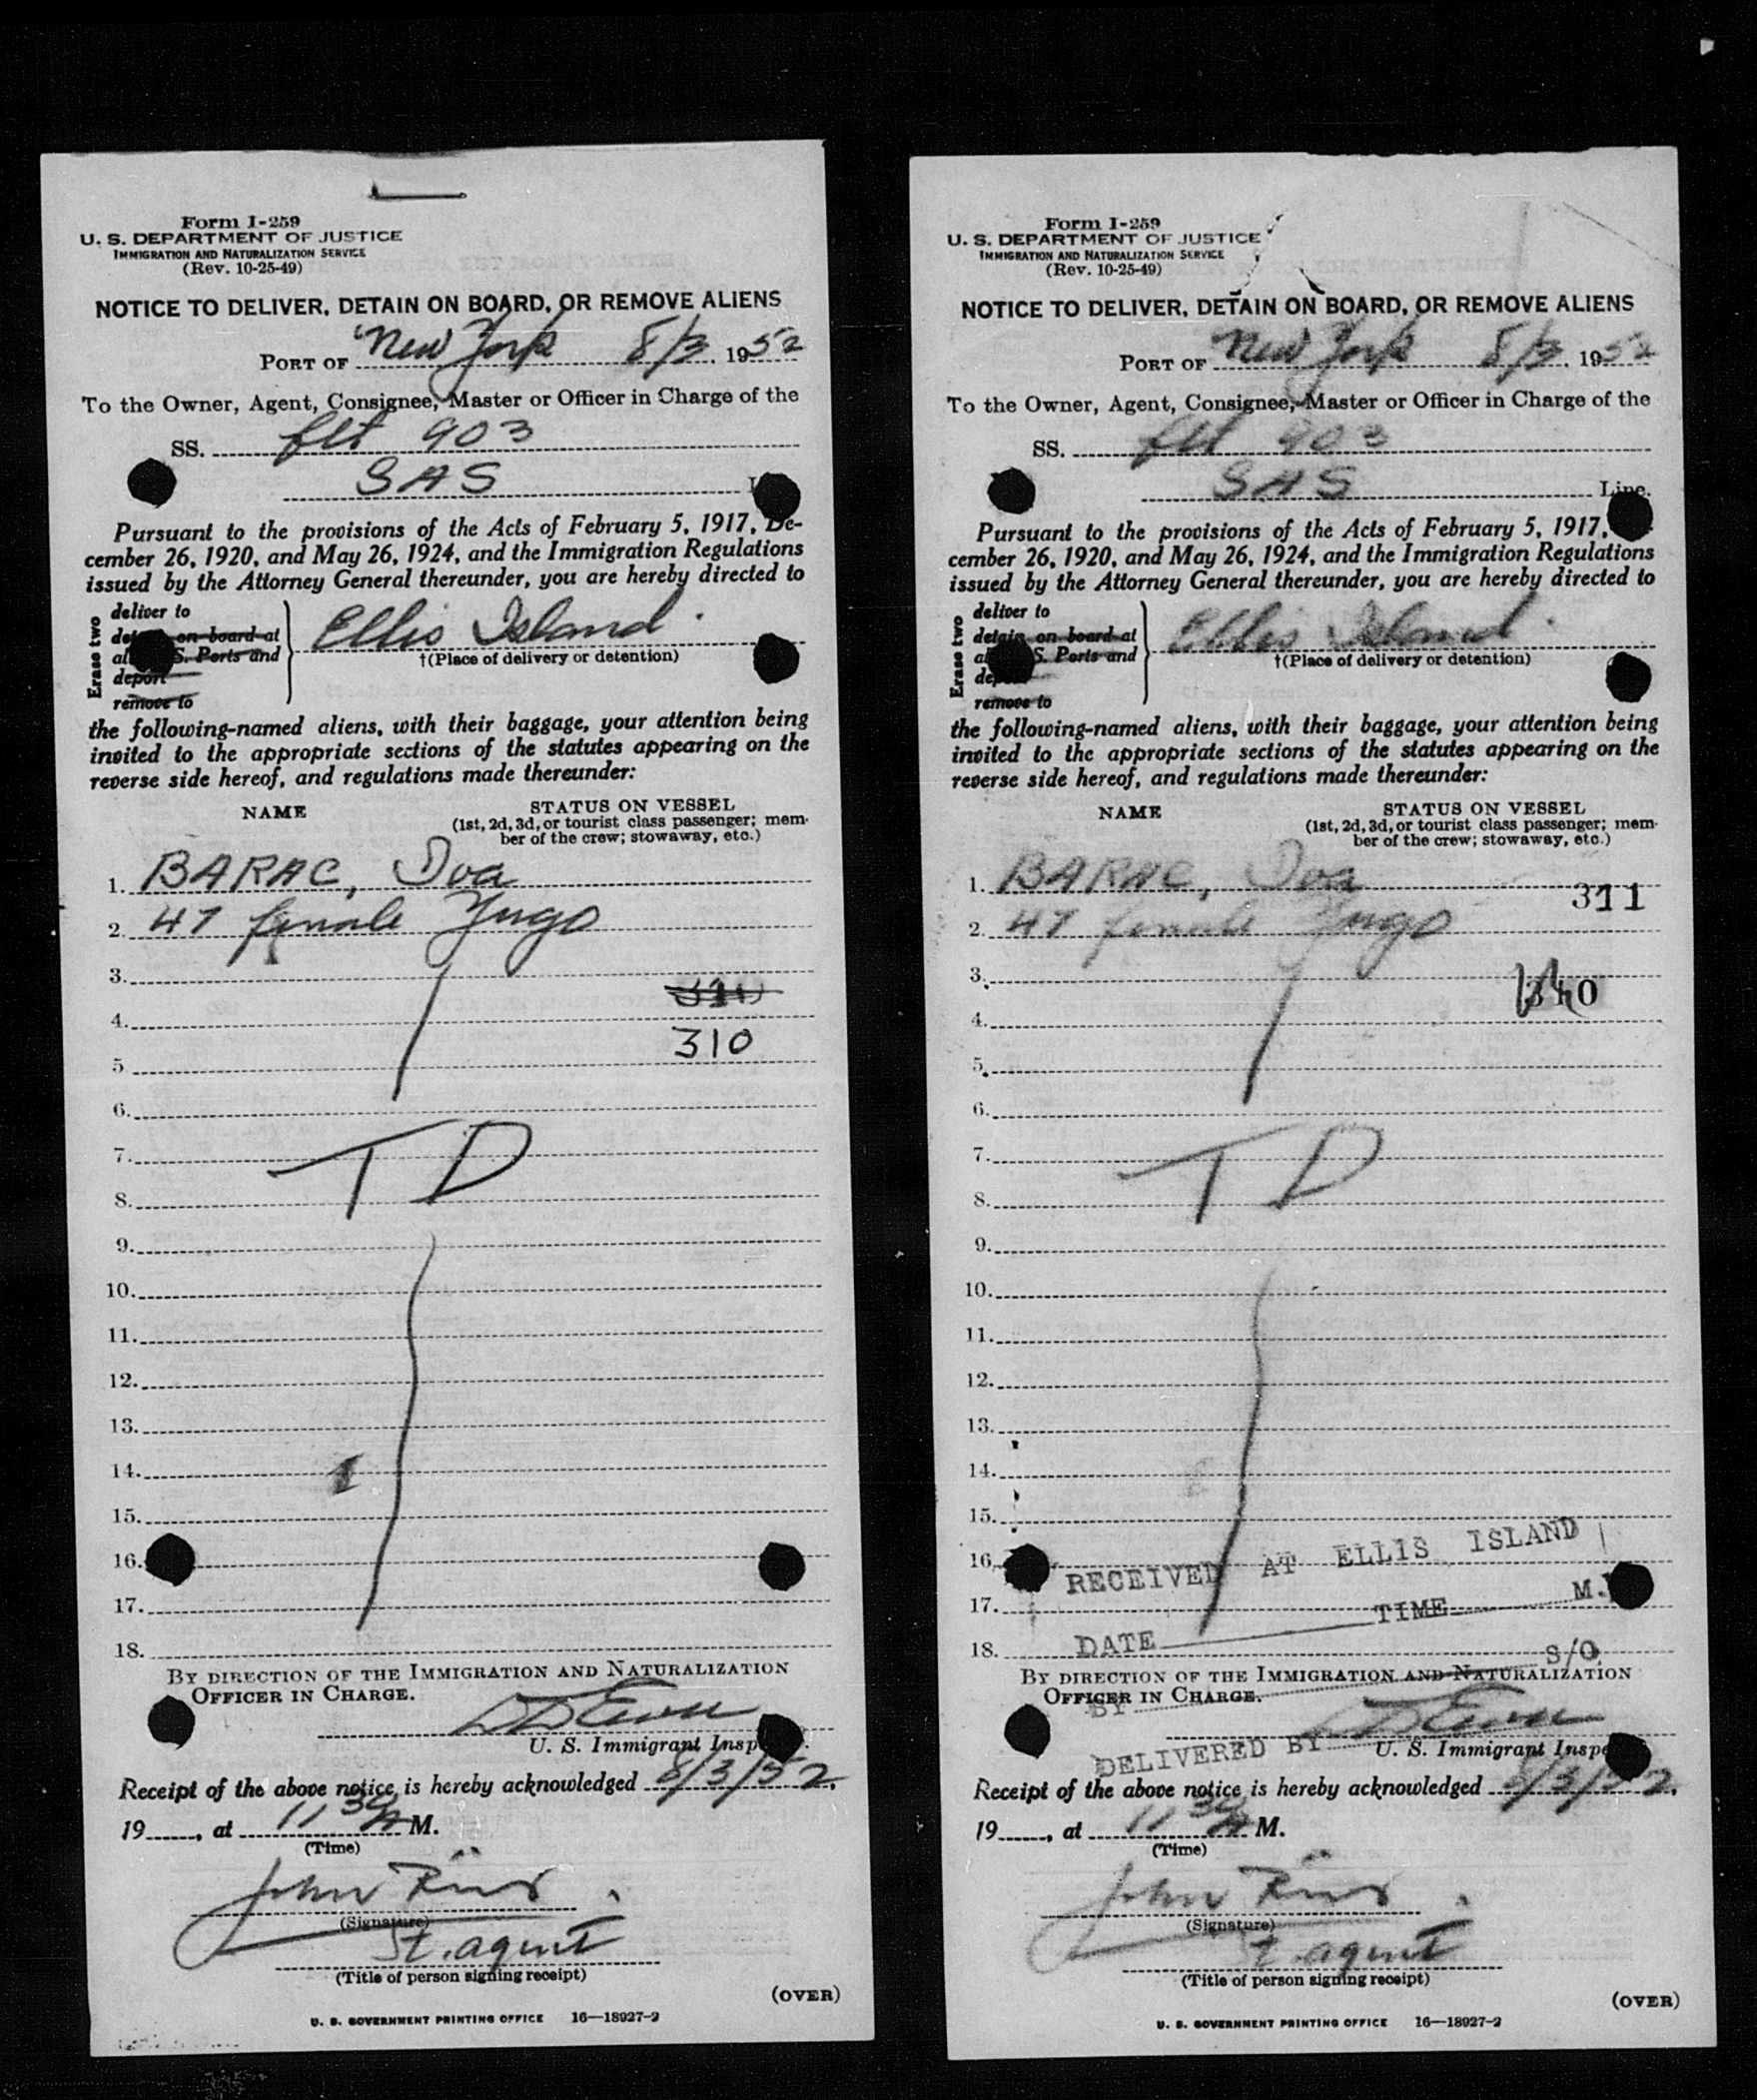 Form I-259
U. S. DEPARTMENT OF JUSTICE
IMMIGRATION AND NATURALIZATION SERVICE
(Rev. 10-25-49)
NOTICE TO DELIVER, DETAIN ON BOARD, OR REMOVE ALIENS
PORT OF New York 8/3, 1952
To the Owner, Agent, Consignee, Master or Officer in Charge of the
SS. flt 903
SAS
Pursuant to the provisions of the Acts of February 5, 1917, De-
cember 26, 1920, and May 26, 1924, and the Immigration Regulations
issued by the Attorney General thereunder, you are hereby directed to
Erase two
deliver to
on board at
S. Ports and
deport
remove to
Ellis Island
†(Place of delivery or detention)
the following-named aliens, with their baggage, your attention being
invited to the appropriate sections of the statutes appearing on the
reverse side hereof, and regulations made thereunder:
NAME STATUS ON VESSEL
(1st, 2d, 3d, or tourist class passenger; mem-
ber of the crew; stowaway, etc.)
1. BARAC, Iva
2. 47 female Yugo
3.
4.
310
5
6.
7.
T D
8.
9.
10.
11.
12.
13.
14.
15.
16.
17.
18.
BY DIRECTION OF THE IMMIGRATION AND NATURALIZATION
OFFICER IN CHARGE.
U. S. Immigrant
Receipt of the above notice is hereby acknowledged 8/3/52,
19, at 11 30 M.
(Time)
John
(Signature)
St. agent
(Title of person signing receipt)
(OVER)
U. S. GOVERNMENT PRINTING OFFICE 16—18927-2
Form I-259
U. S. DEPARTMENT OF JUSTICE
IMMIGRATION AND NATURALIZATION SERVICE
(Rev. 10-25-49)
NOTICE TO DELIVER, DETAIN ON BOARD, OR REMOVE ALIENS
PORT OF New York 8/3, 1952
To the Owner, Agent, Consignee, Master or Officer in Charge of the
SS. flt 903
SAS Line.
Pursuant to the provisions of the Acts of February 5, 1917,
cember 26, 1920, and May 26, 1924, and the Immigration Regulations
issued by the Attorney General thereunder, you are hereby directed to
Erase two
deliver to
detain on board at
S. Ports and
remove to
Ellis Island
†(Place of delivery or detention)
the following-named aliens, with their baggage, your attention being
invited to the appropriate sections of the statutes appearing on the
reverse side hereof, and regulations made thereunder:
NAME STATUS ON VESSEL
(1st, 2d, 3d, or tourist class passenger; mem-
ber of the crew; stowaway, etc.)
1. BARAC, Iva
311
2. 47 female Yugo
3.
4.
5.
6.
7.
T D
8.
9.
10.
11.
12.
13.
14.
15.
16.
RECEIVED AT ELLIS ISLAND
17.
DATE TIME M.
18.
S/O
BY DIRECTION OF THE IMMIGRATION AND NATURALIZATION
OFFICER IN CHARGE.
BY
DELIVERED BY
U. S. Immigrant
Receipt of the above notice is hereby acknowledged 8/3/52,
19, at 11 30 M.
(Time)
John
(Signature)
St. agent
(Title of person signing receipt)
(OVER)
U. S. GOVERNMENT PRINTING OFFICE 16—18927-2